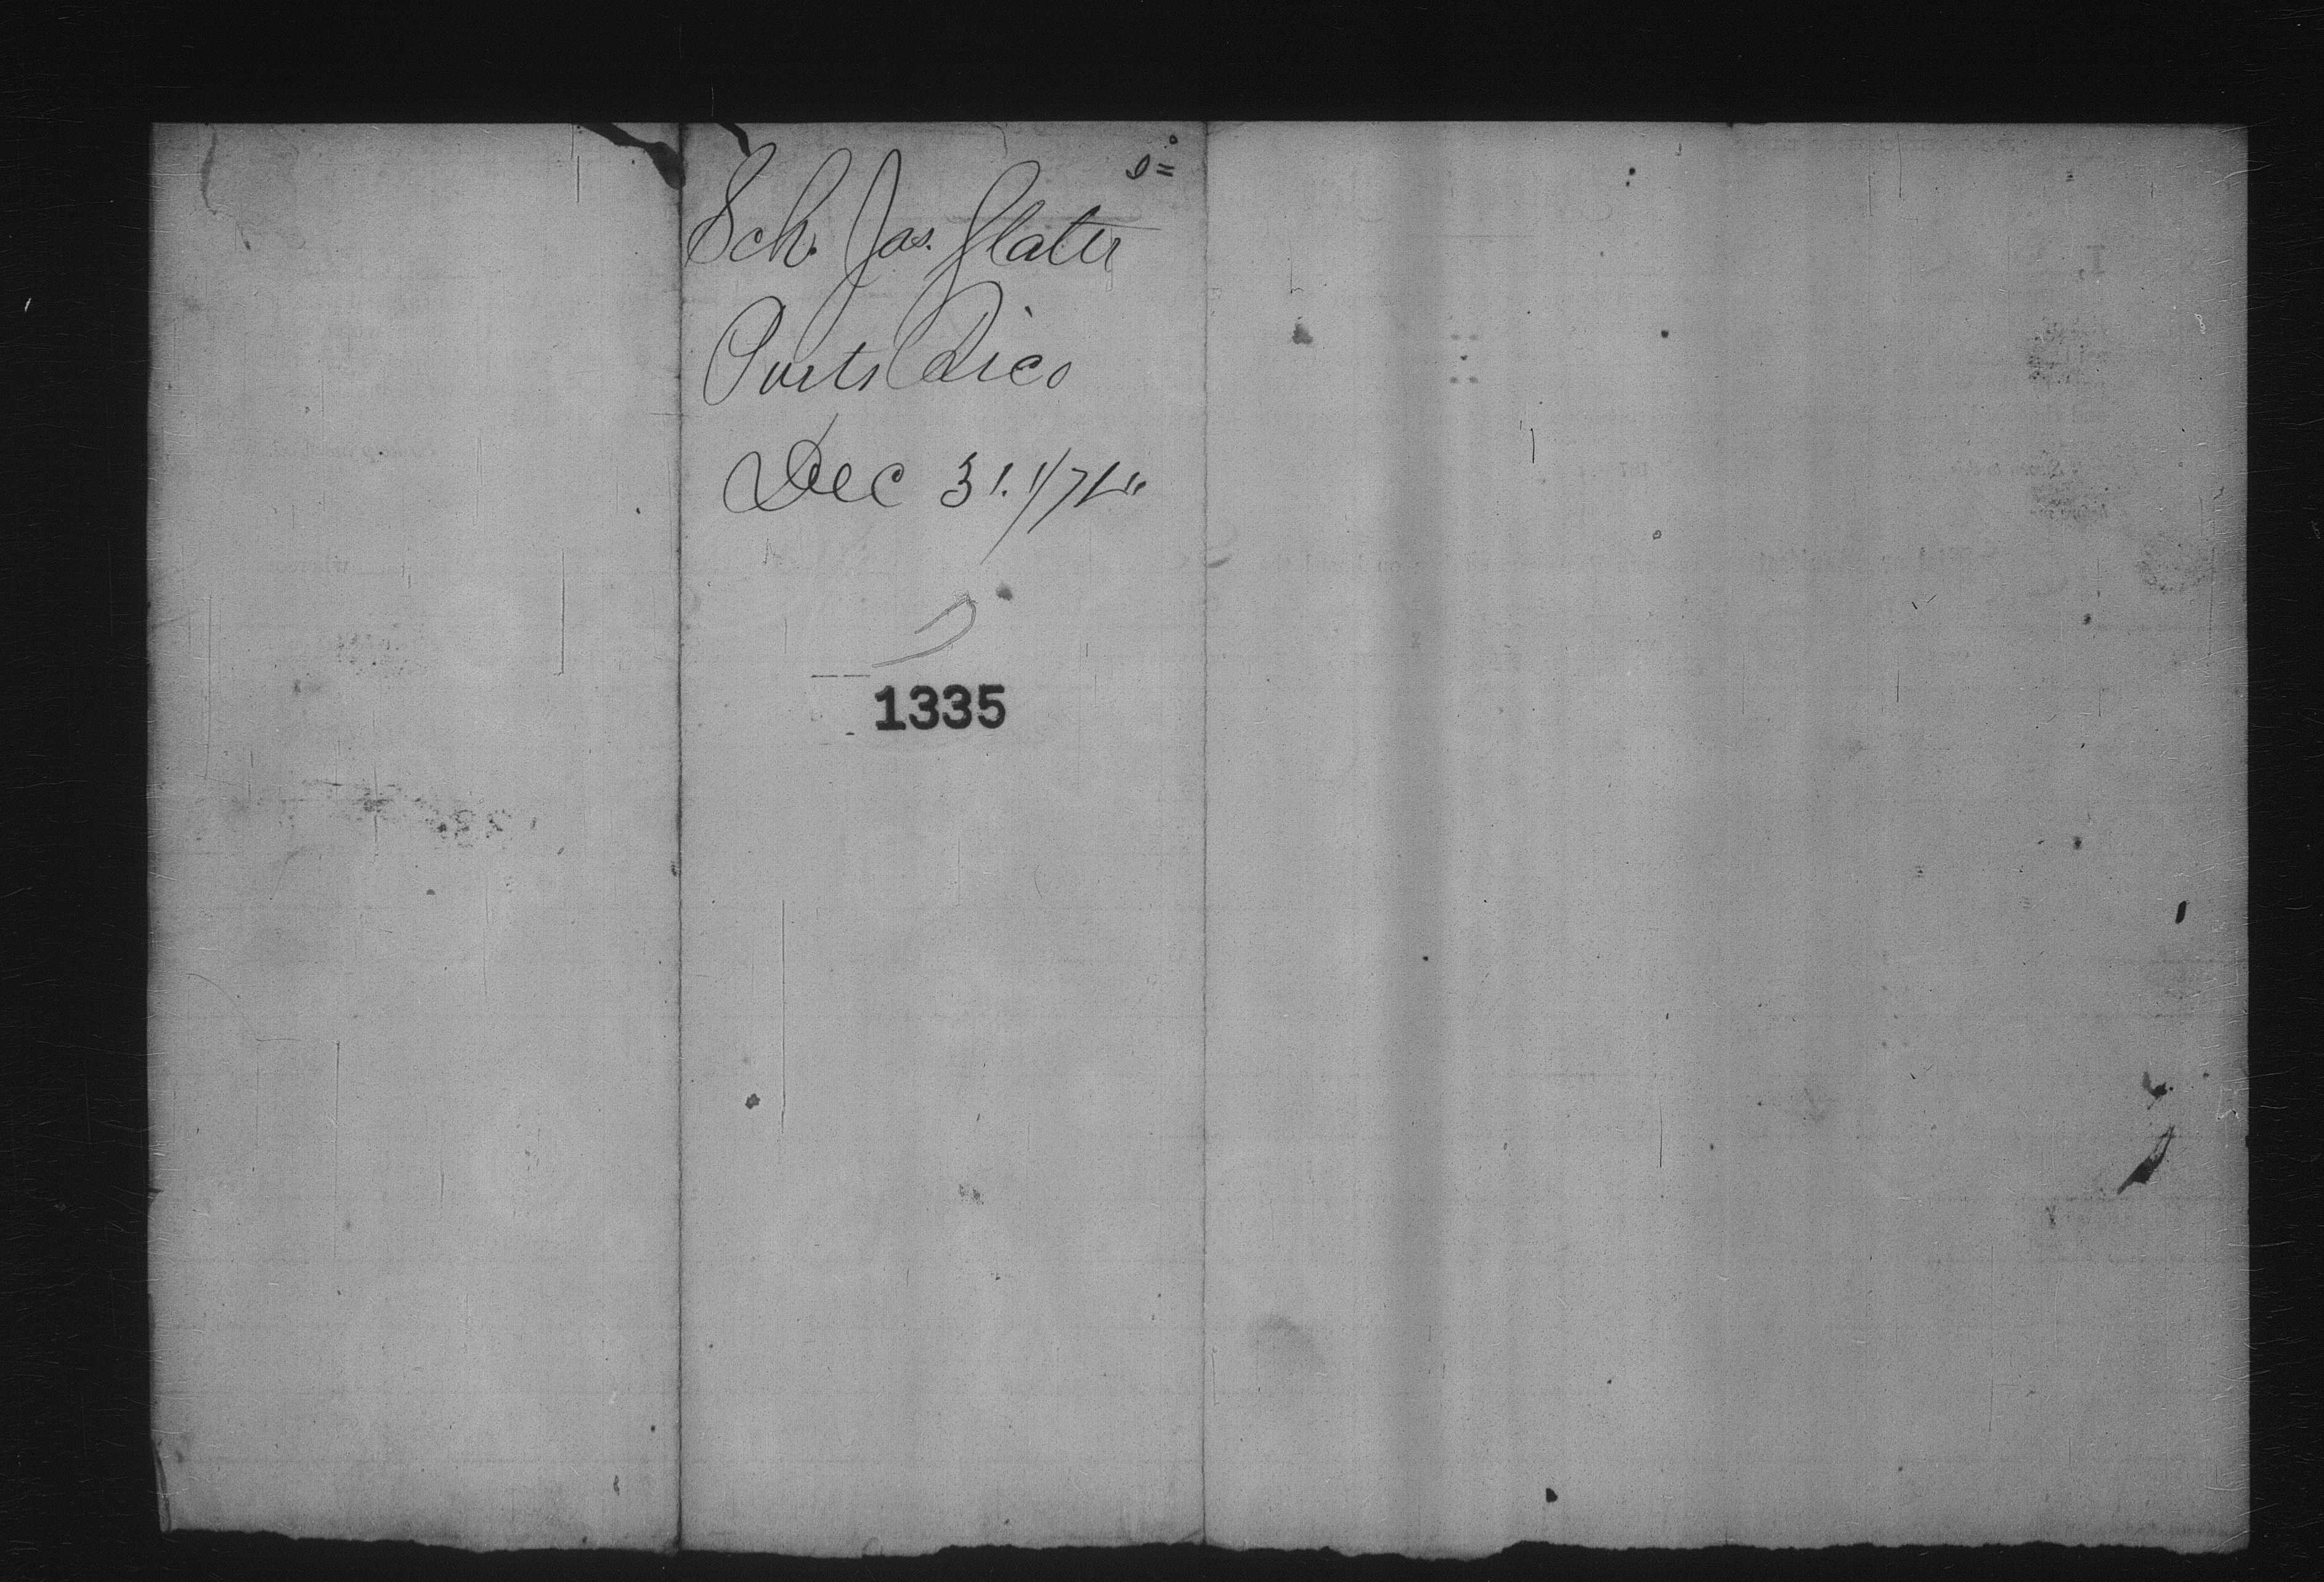 Sch. Jas. Slater
Porto Rico
Dec 31. 1/71
1335